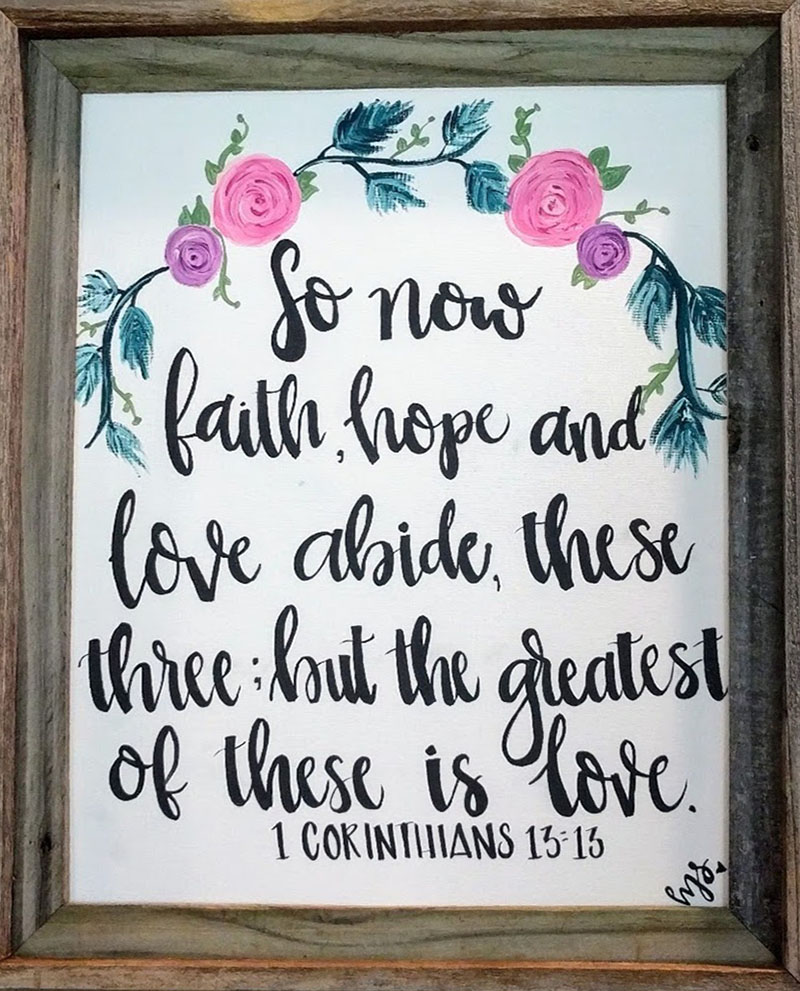 So now
faith, hope and
love abide, these
three; but the greatest
of these is love.
1 CORINTHIANS 13:13